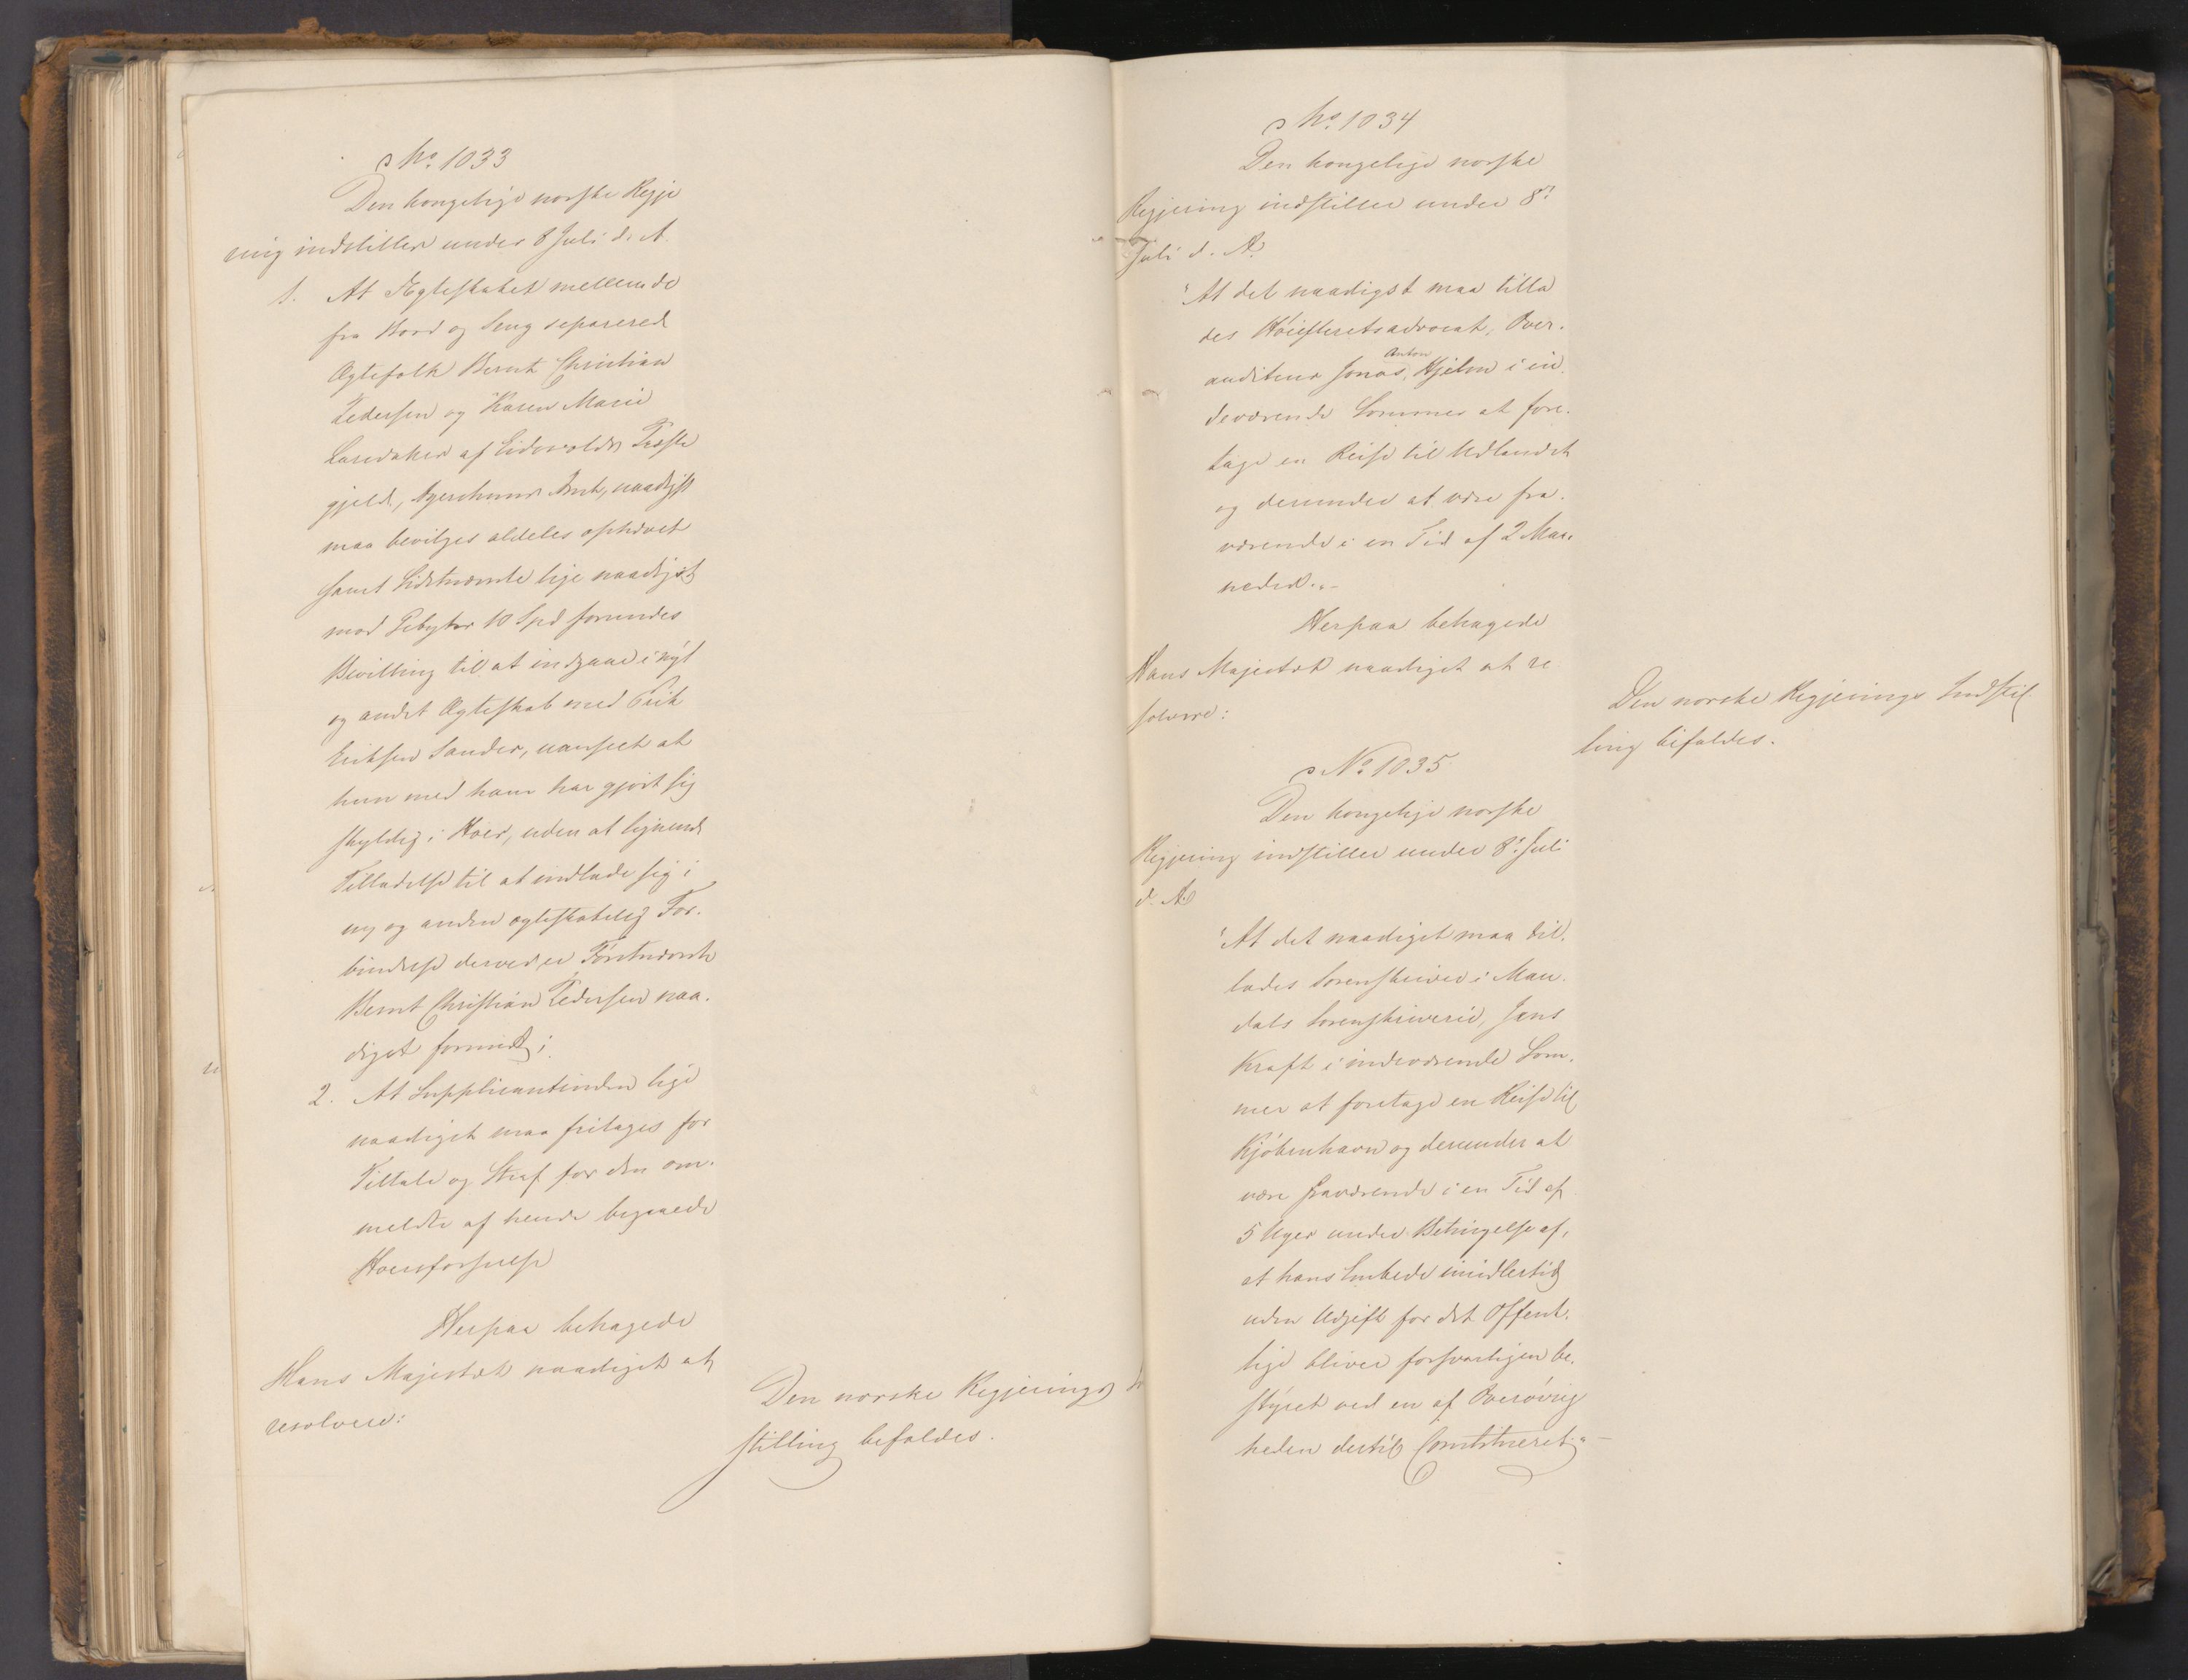 No 1033
Den kongelige norske Regje
ring indstiller under 8 Juli d. A.
1. At Ægteskabet mellem de
fra Bord og Seng separered
Ægtefolk Bernt Christian
Pedersen og Karen Marie
Larsdatter af Eidsvolds Præste
gjeld, Agershuus Amt, naadigst
maa bevilges aldeles ophævet
samt Sidstnævnte lige naadigst
mod Gebyhr 10 Spd forundes
Bevilling til at indgaae i nyt
og andet Ægteskab med Erik
Eriksen Sander, uanseet at
hun med ham har gjort sig
skyldig i Hoer, uden at lignende
Tilladelse til at indlade sig i
ny og anden ægteskabelig For-
bindelse derved er Førstnævnte
Bernt Christian Pedersen naa-
digst formeent;
2. At Supplicantinden lige
naadigst maa fritages for
Tiltale og Straf for den om-
meldte af hende begaaede
Hoersforseelse
Herpaa behagede
Hans Majestæt naadigst at
resolvere:
Den norske Regjerings Ind
stilling bifaldes.
No 1034
Den kongelige norske
Regjering indstiller under 8de
Juli d. A.
"At det naadigst maa tilla
des Høiesteretsadvocat, Over-
auditeur Jonas Anton Hjelm i in-
deværende Sommer at fore-
tage en Reise til Udlandet
og derunder at være fra-
værende i en Tid af 2 Maa-
neder."-
Herpaa behagede
Hans Majestæt naadigst at re
solvere:
Den norske Regjerings Indstil
ling bifaldes.
No 1035
Den kongelige norske
Regjering indstiller under 8de Juli
d. A.
"At det naadigst maa til-
lades Sorenskriver i Man-
dals Sorenskriverie, Jens
Kraft i indeværende Som-
mer at foretage en Reise til
Kjøbenhavn og derunder at
være fraværende i en Tid af
5 Uger under Betingelse af,
at hans Embede imidlertid
uden Udgift for det Offent-
lige bliver forsvarligen be-
styret ved en af Overøvrig
heden dertil Constitueret."-